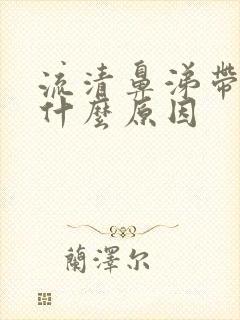 流清鼻涕帶
什麼原因
蘭澤尔